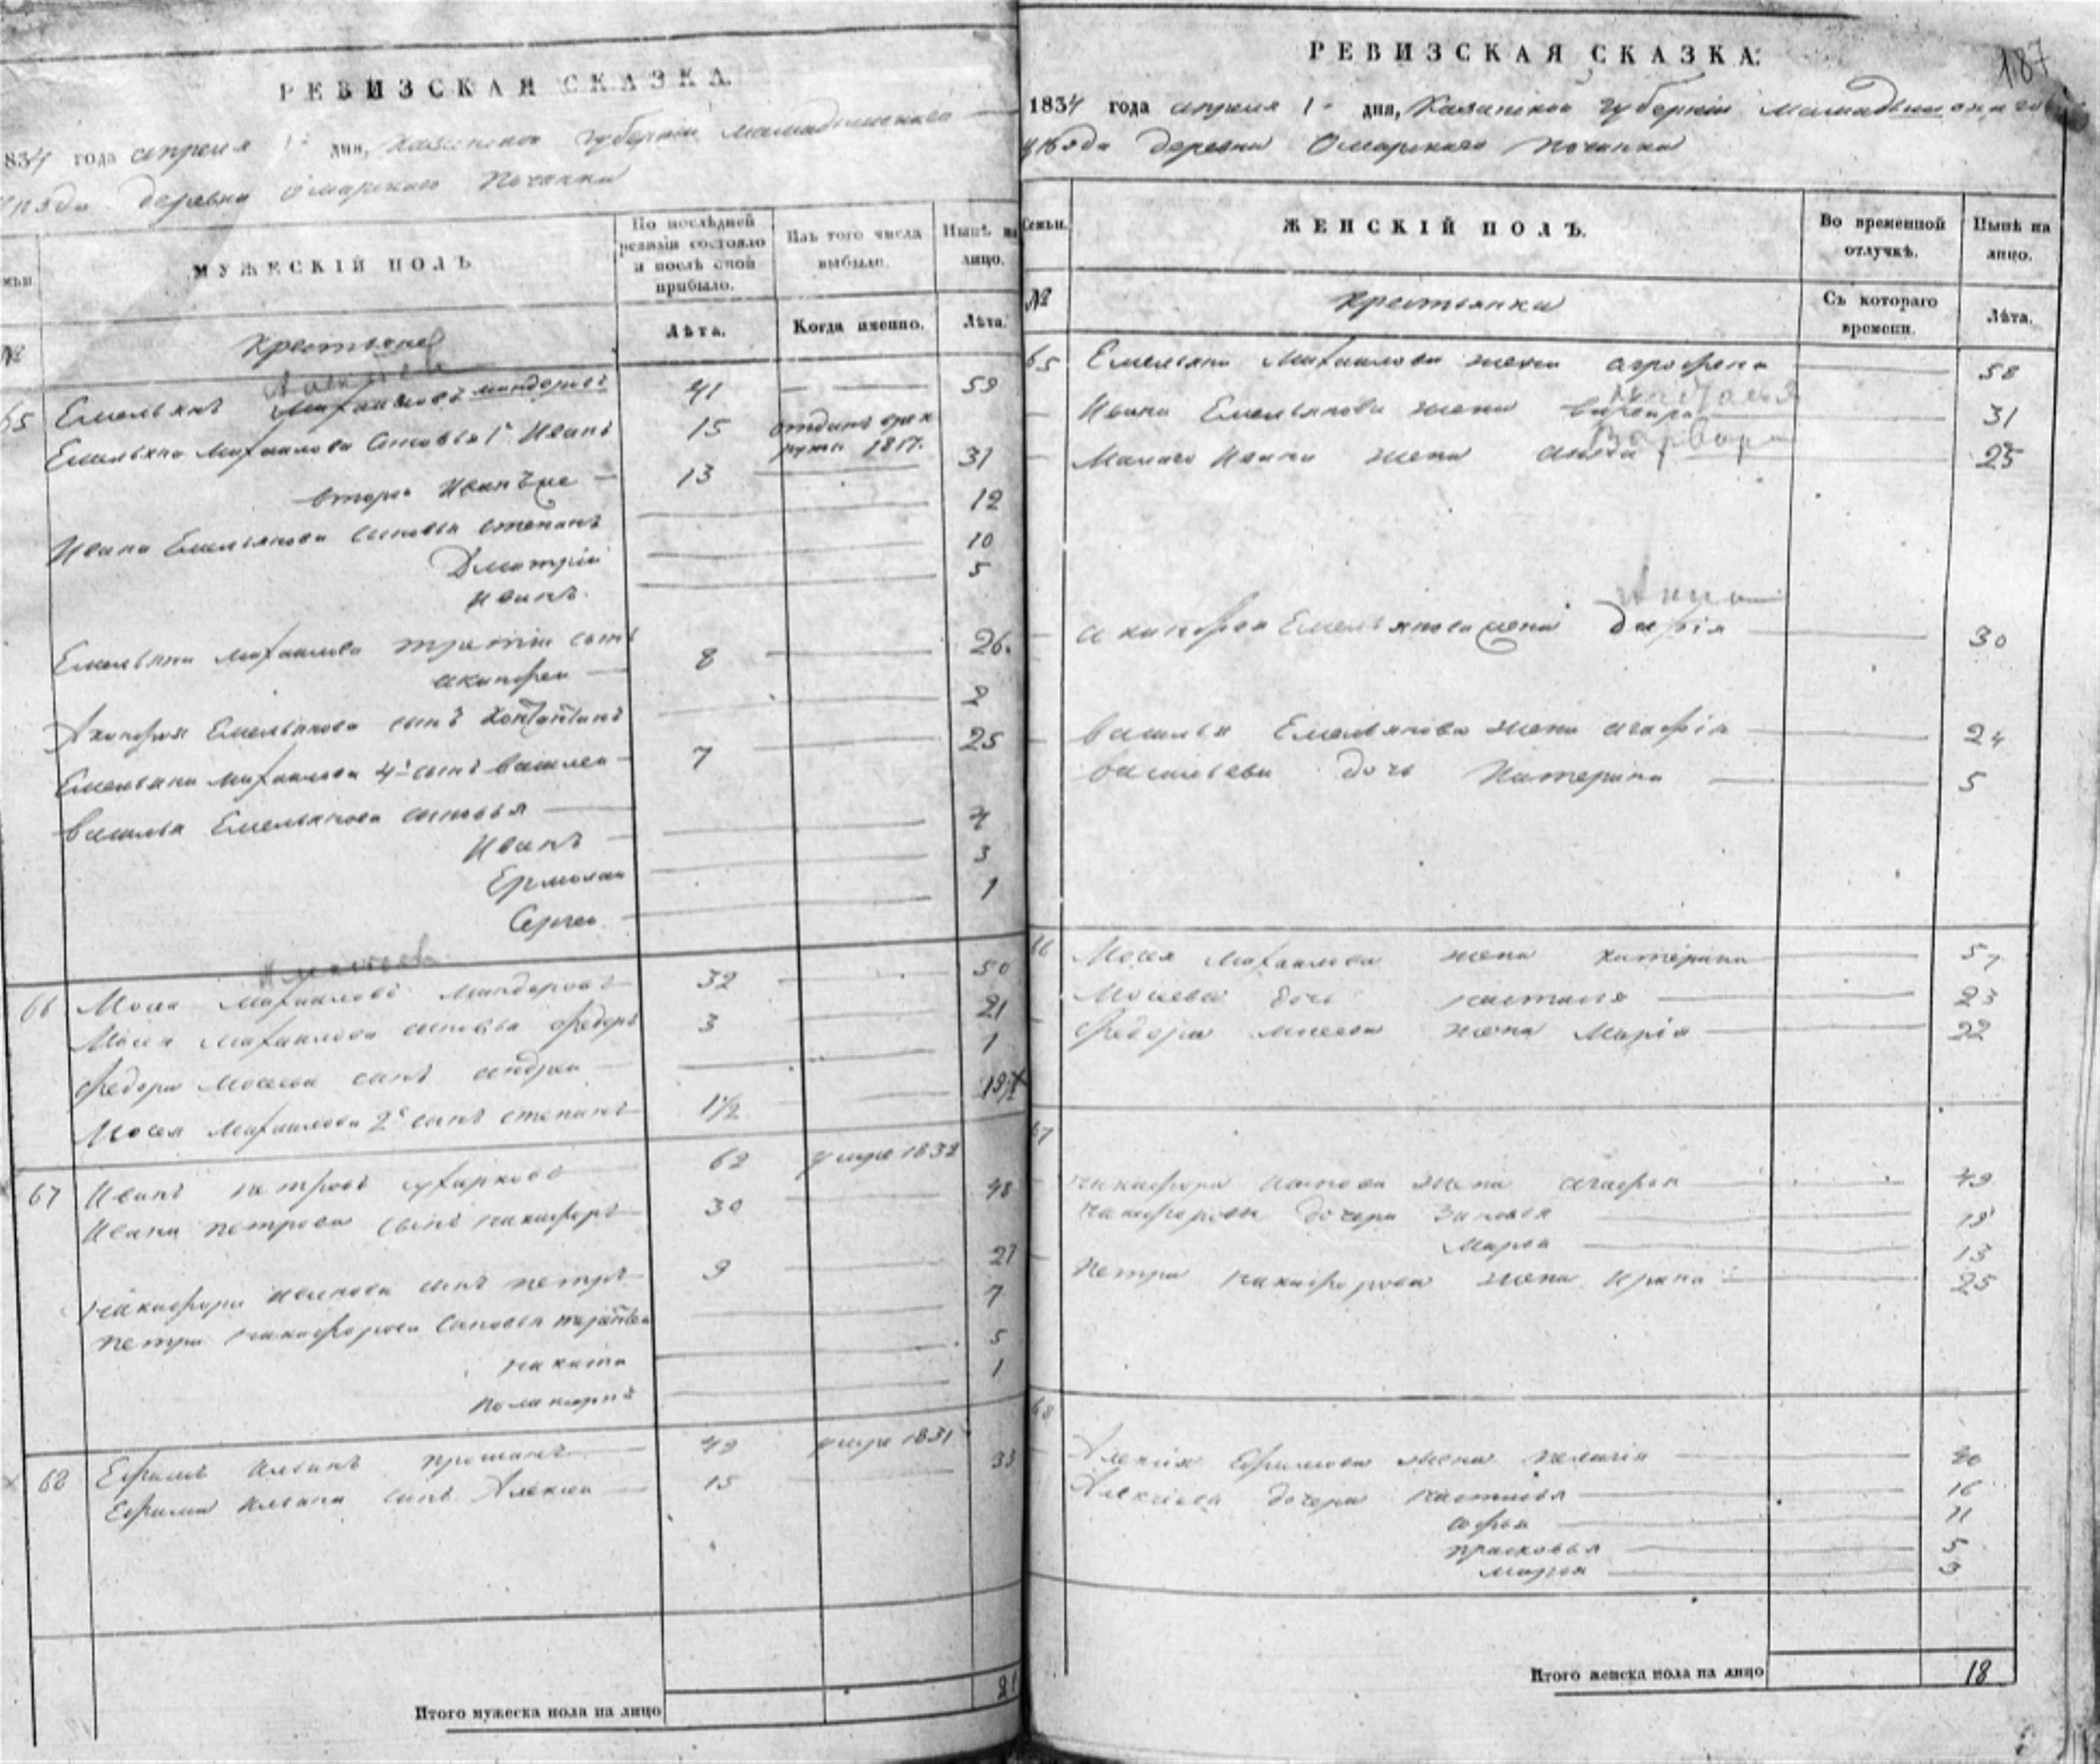 РЕВИЗСКАЯ СКАЗКА.
834 года апреля 1 дня, Казанской губернiи Мамадышскаго
уѣзда деревни Омарскаго Починка
МУЖЕСКІЙ ПОЛЪ
По послѣдней ревизіи состояло и послѣ оной прибыло.
Изъ того числа выбыло.
Нынѣ на лицо.
№
Крестьяне
Лѣта.
Когда именно.
Лѣта.
65 Емельянъ Михайловъ 41 59
Емельяна Михайлова сыновья 1й Иванъ 15 отданъ в рекруты 1817.
второй Иванъ же 13 31
Ивана Емельянова сыновья Степанъ 12
Дмитрій 10
Иванъ 5
Емельяна Михайлова третiй сынъ
Акинфей 8 26.
Акинфея Емельянова сынъ 2
Емельяна Михайлова 4й сынъ Василей 7 25
Василья Емельянова сыновья
Иванъ 4
Ермолай 3
Сергей 1
66 Мосей Михайловъ 32 50
Мосея Михайлова сыновья Федоръ 3 21
Федора Мосеева сынъ Андрей 1
Мосея Михайлова 2й сынъ Степанъ 1½ 19½
67 Иванъ Петровъ 62 умре 1832
Ивана Петрова сынъ Никифоръ 30 48
Никифора Иванова сынъ Петръ 9 27
Петра Никифорова сыновья 7
Никита 5
1
68 Ефимъ 49 умре 1831
Ефима сынъ Алексей 15 33
Итого мужеска пола на лицо 21
187
РЕВИЗСКАЯ СКАЗКА.
1834 года апреля 1 дня, Казанской губернiи Мамадышскаго
уѣзда деревни Омарскаго Починка
Семьи.
ЖЕНСКІЙ ПОЛЪ.
Во временной отлучкѣ.
Нынѣ на лицо.
№
Крестьянки
Съ котораго времени.
Лѣта.
65 Емельяна Михайлова жена Агрофена 58
Ивана Емельянова жена 31
Малаго Ивана жена 25
Варвара
Анна
Акинфея Емельянова жена Дарiя 30
Василья Емельянова жена Агафiя 24
Васильева дочь Катерина 5
66 Мосея Михайлова жена Катерина 57
Мосеева дочь Настасья 23
Федора Мосеева жена Марiя 22
67
Никифора Иванова жена Агафья 49
Никифоровы дочери 19
Марья 13
Петра Никифорова жена Ирина 25
68
Алексея Ефимова жена Пелагiя 40
Алексеева дочери Настасья 16
Софья 11
Прасковья 5
Марья 3
Итого женска пола на лицо 18